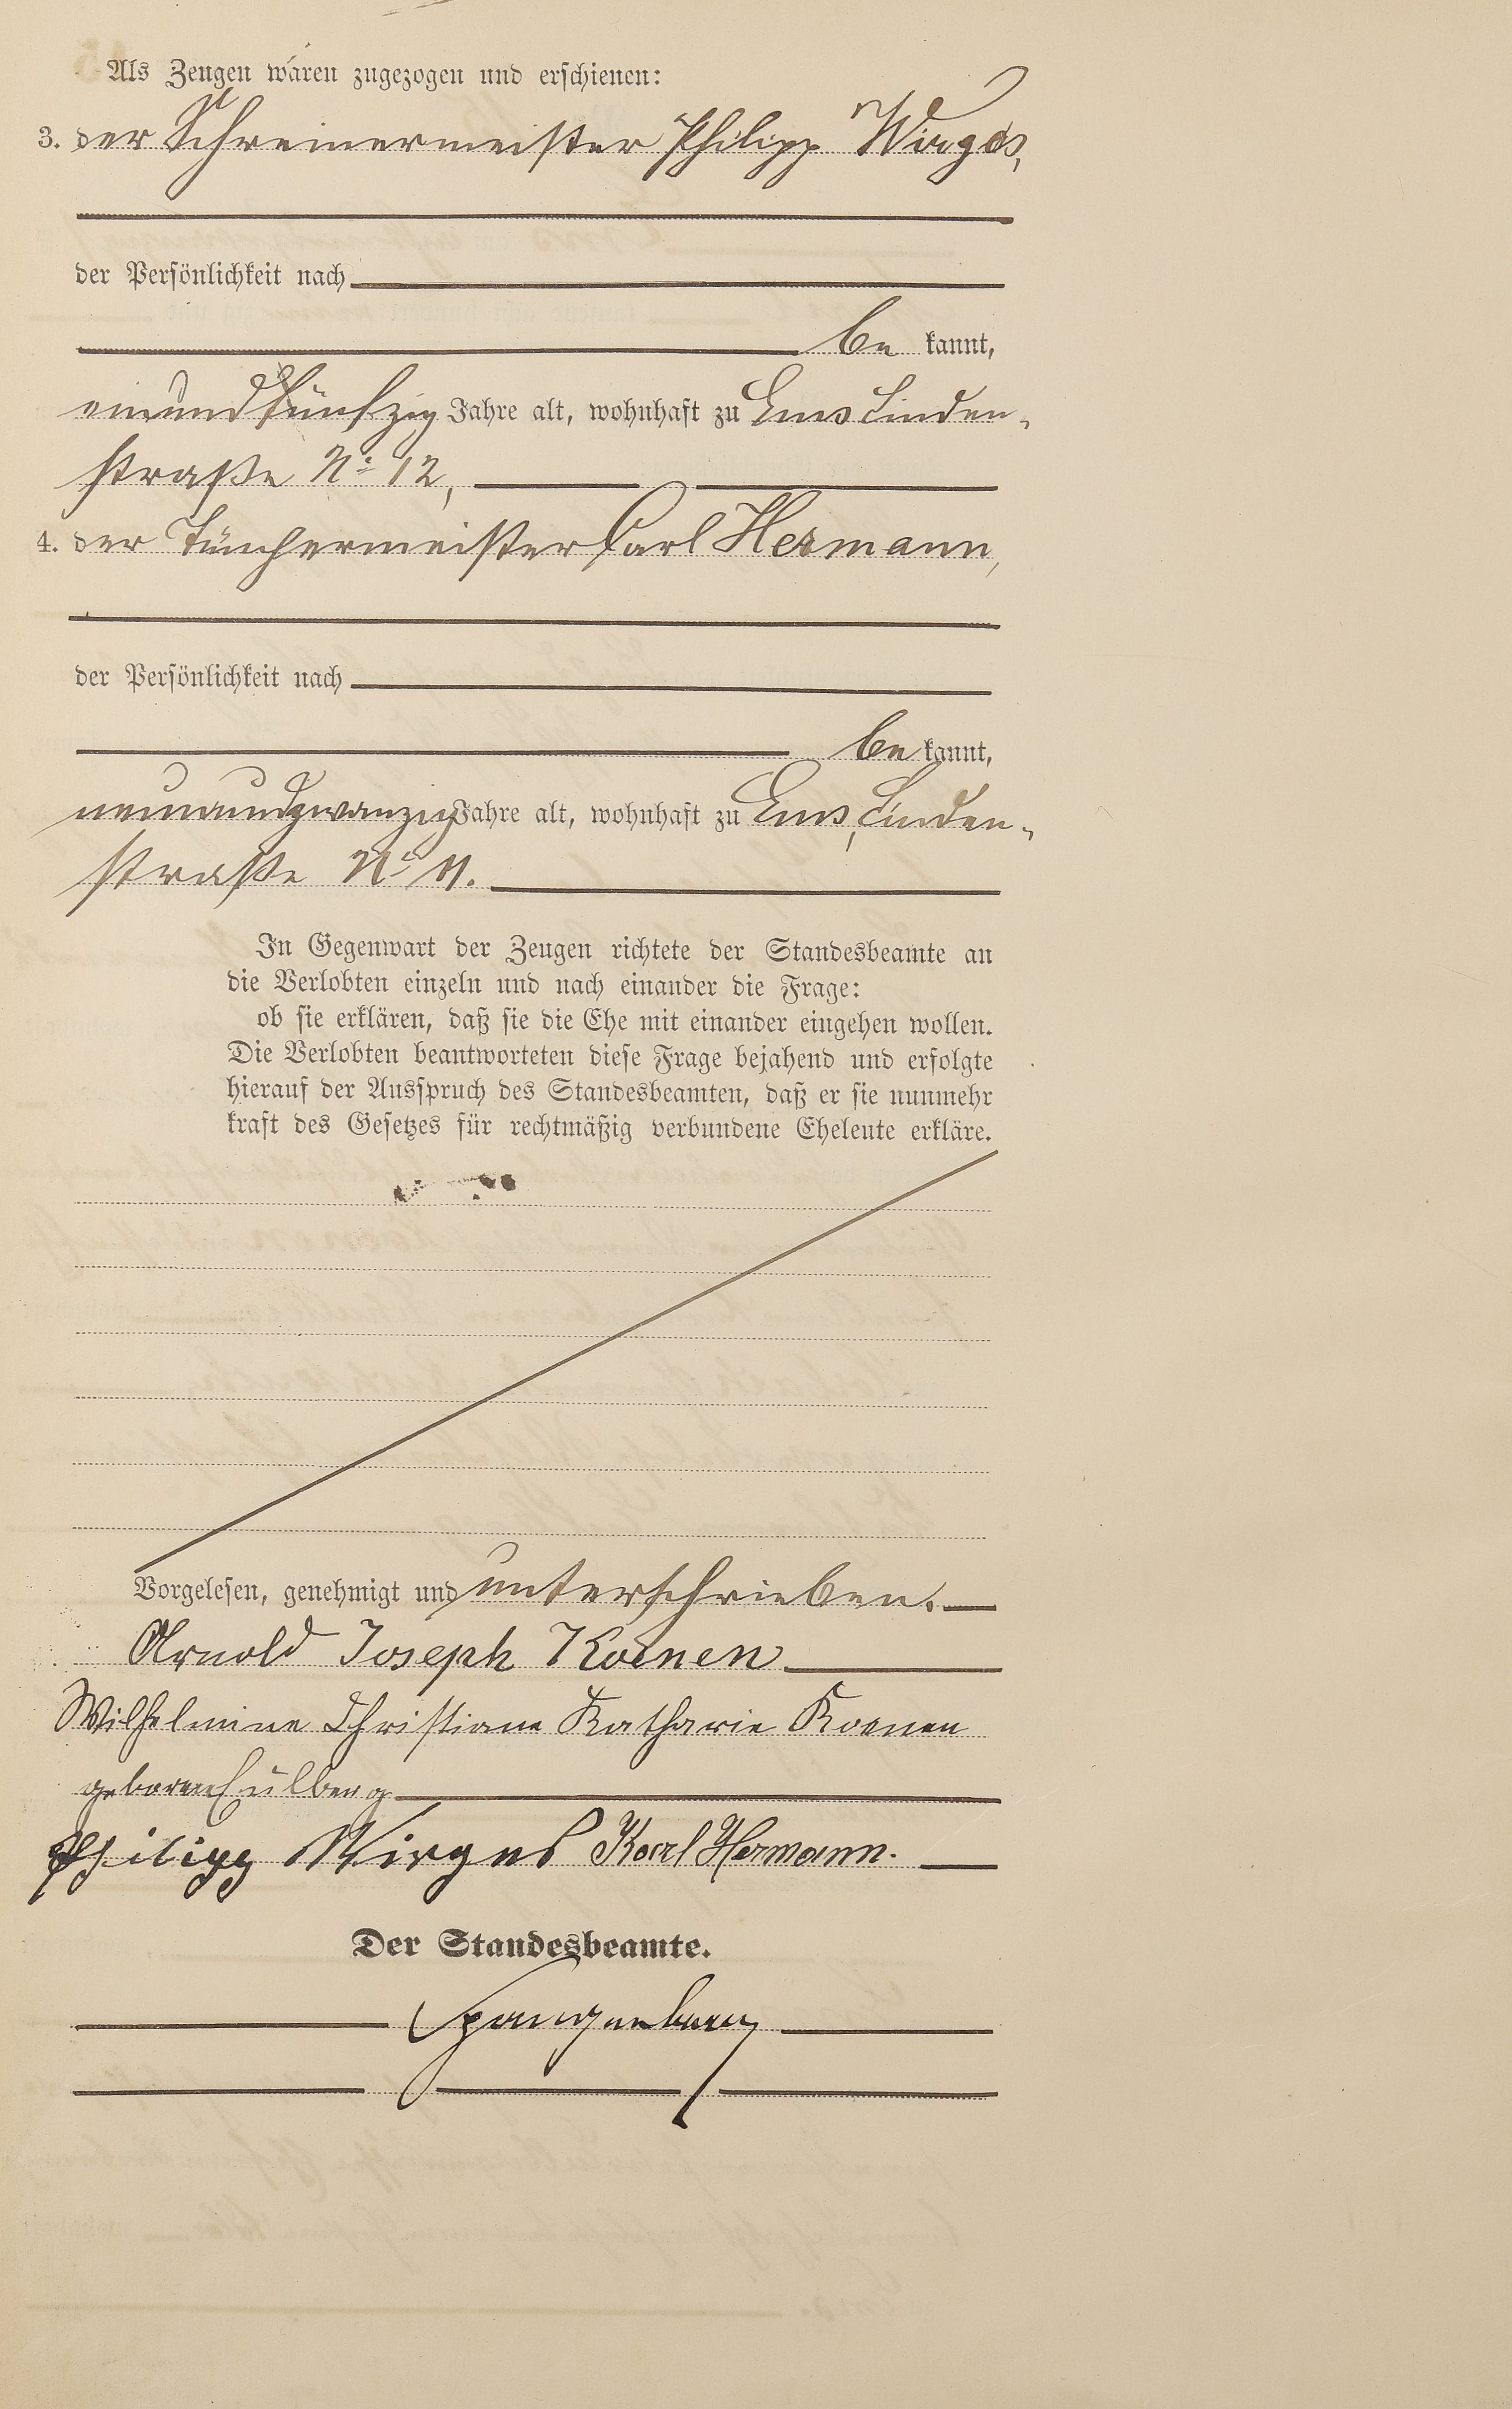 Als Zeugen waren zugezogen und erschienen:
3. der Schreinermeister Philipp Wirges,
der Persönlichkeit nach
be kannt,
einundfünfzig Jahre alt, wohnhaft zu Ems Linden-
straße No 12,
4. der Tünchermeister Carl Hermann,
der Persönlichkeit nach
be kannt,
neunundzwanzig Jahre alt, wohnhaft zu Ems, Linden-
straße No 11.
In Gegenwart der Zeugen richtete der Standesbeamte an
die Verlobten einzeln und nach einander die Frage:
ob sie erklären, daß sie die Ehe mit einander eingehen wollen.
Die Verlobten beantworteten diese Frage bejahend und erfolgte
hierauf der Ausspruch des Standesbeamten, daß er sie nunmehr
kraft des Gesetzes für rechtmäßig verbundene Eheleute erkläre.
Vorgelesen, genehmigt und unterschrieben.
Arnold Joseph Koenen
Wilhelmine Christiane Katharie Koenen
geborene Cülberg
Philipp Wirges Karl Hermann.
Der Standesbeamte.
Spangenberg